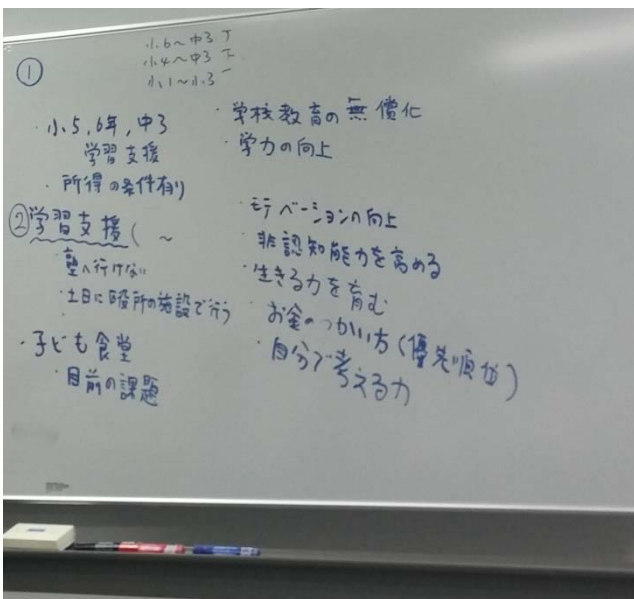 小.6〜中3 下
小4〜中3 下
小.1〜小.3
①
・小.5,6年,中3
学習支援
・所得の条件有り
②学習支援( 〜
・塾へ行けない
・土日に区役所の施設で行う
・子ども食堂
・目前の課題
・学校教育の無償化
・学力の向上
・モチベーションの向上
・非認知能力を高める
・生きる力を育む
・お金のつかい方(優先順位)
・自分で考える力